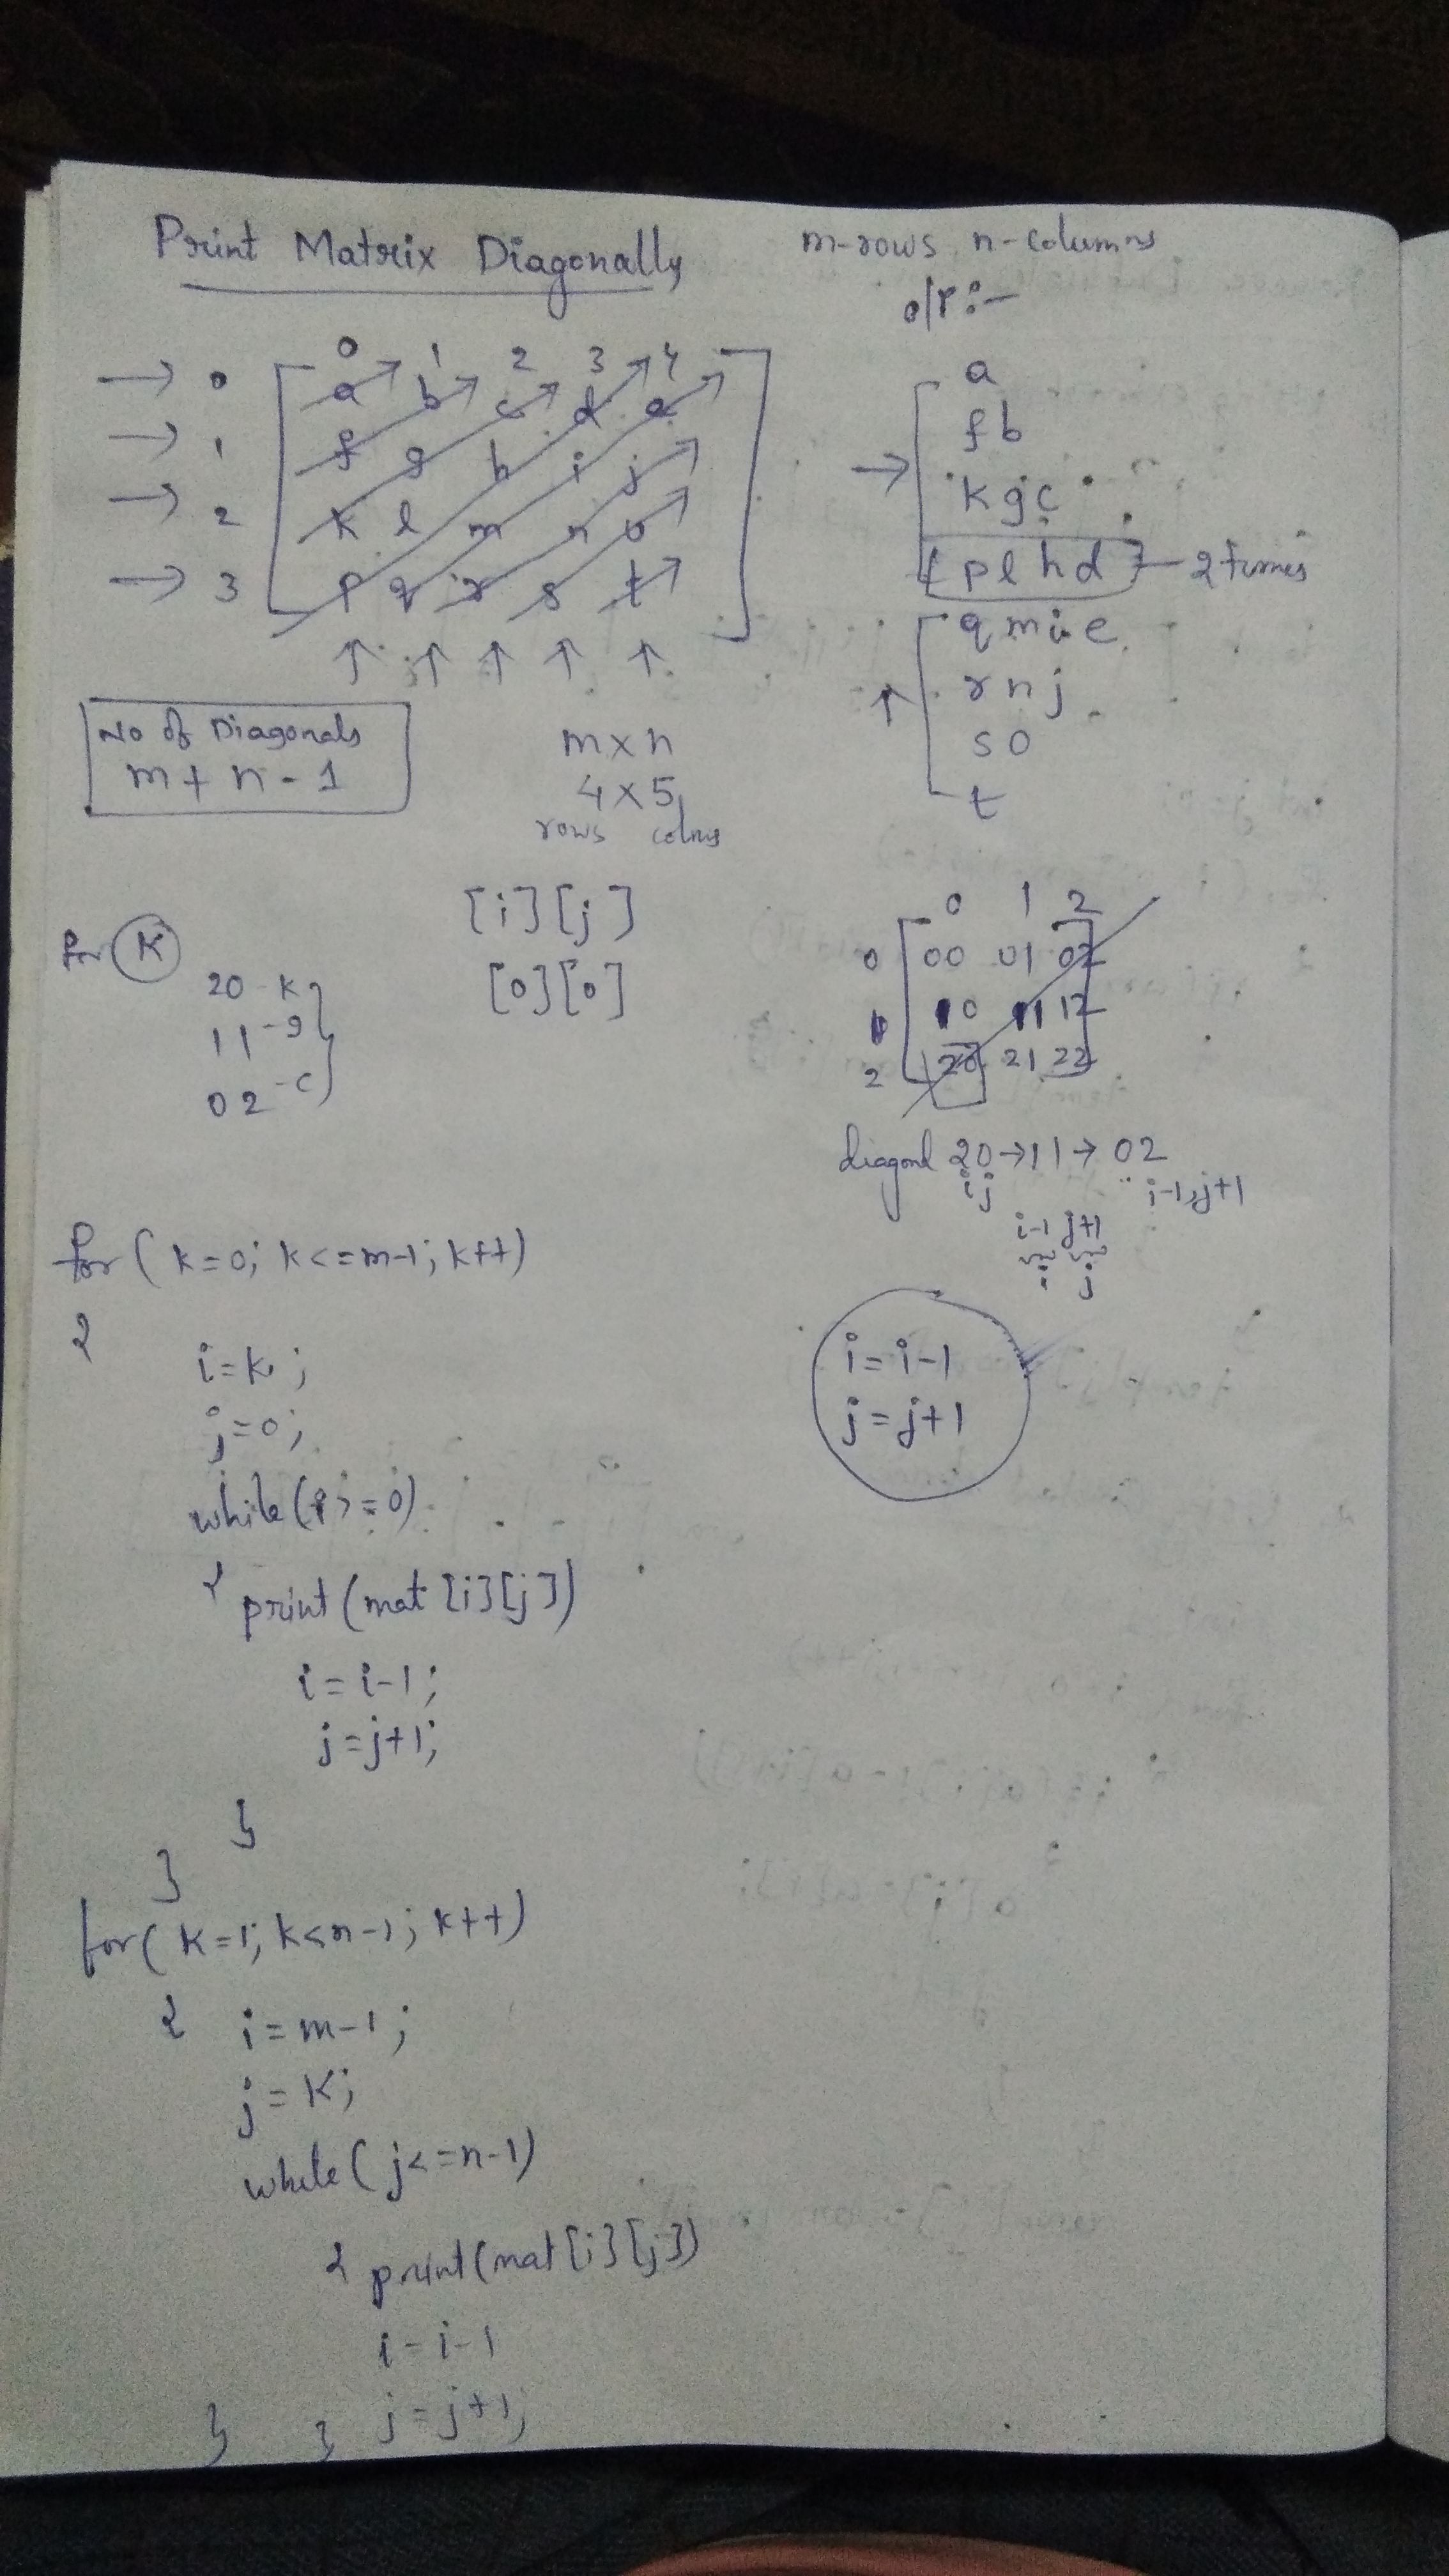 Print Matrix Diagonally
m-rows, n-columns
o/p:-
0 1 2 3 4
→ 0 a b c d e
→ 1 f g h i j
→ 2 k l m n o
→ 3 p q r s t
a
f b
k g c
p l h d - 2 times
q m i e
r n j
s o
t
No of Diagonals
m + n - 1
m x n
4 x 5
rows colms
[i][j]
[0][0]
for K
20 - K
11 - g
02 - c
0 1 2
0 00 01 02
1 10 11 12
2 20 21 22
diagonal 20→11→02
i j
i-1, j+1
i-1 j+1
i j
i = i-1
j = j+1
for ( k=0; k<=m-1; k++)
{
i=k;
j=0;
while(i>=0)
{ print(mat[i][j])
i = i-1;
j = j+1;
}
}
for( k=1; k<n-1; k++)
{ i = m-1;
j = k;
while( j<=n-1)
{ print(mat[i][j])
i = i-1
j = j+1;
} }